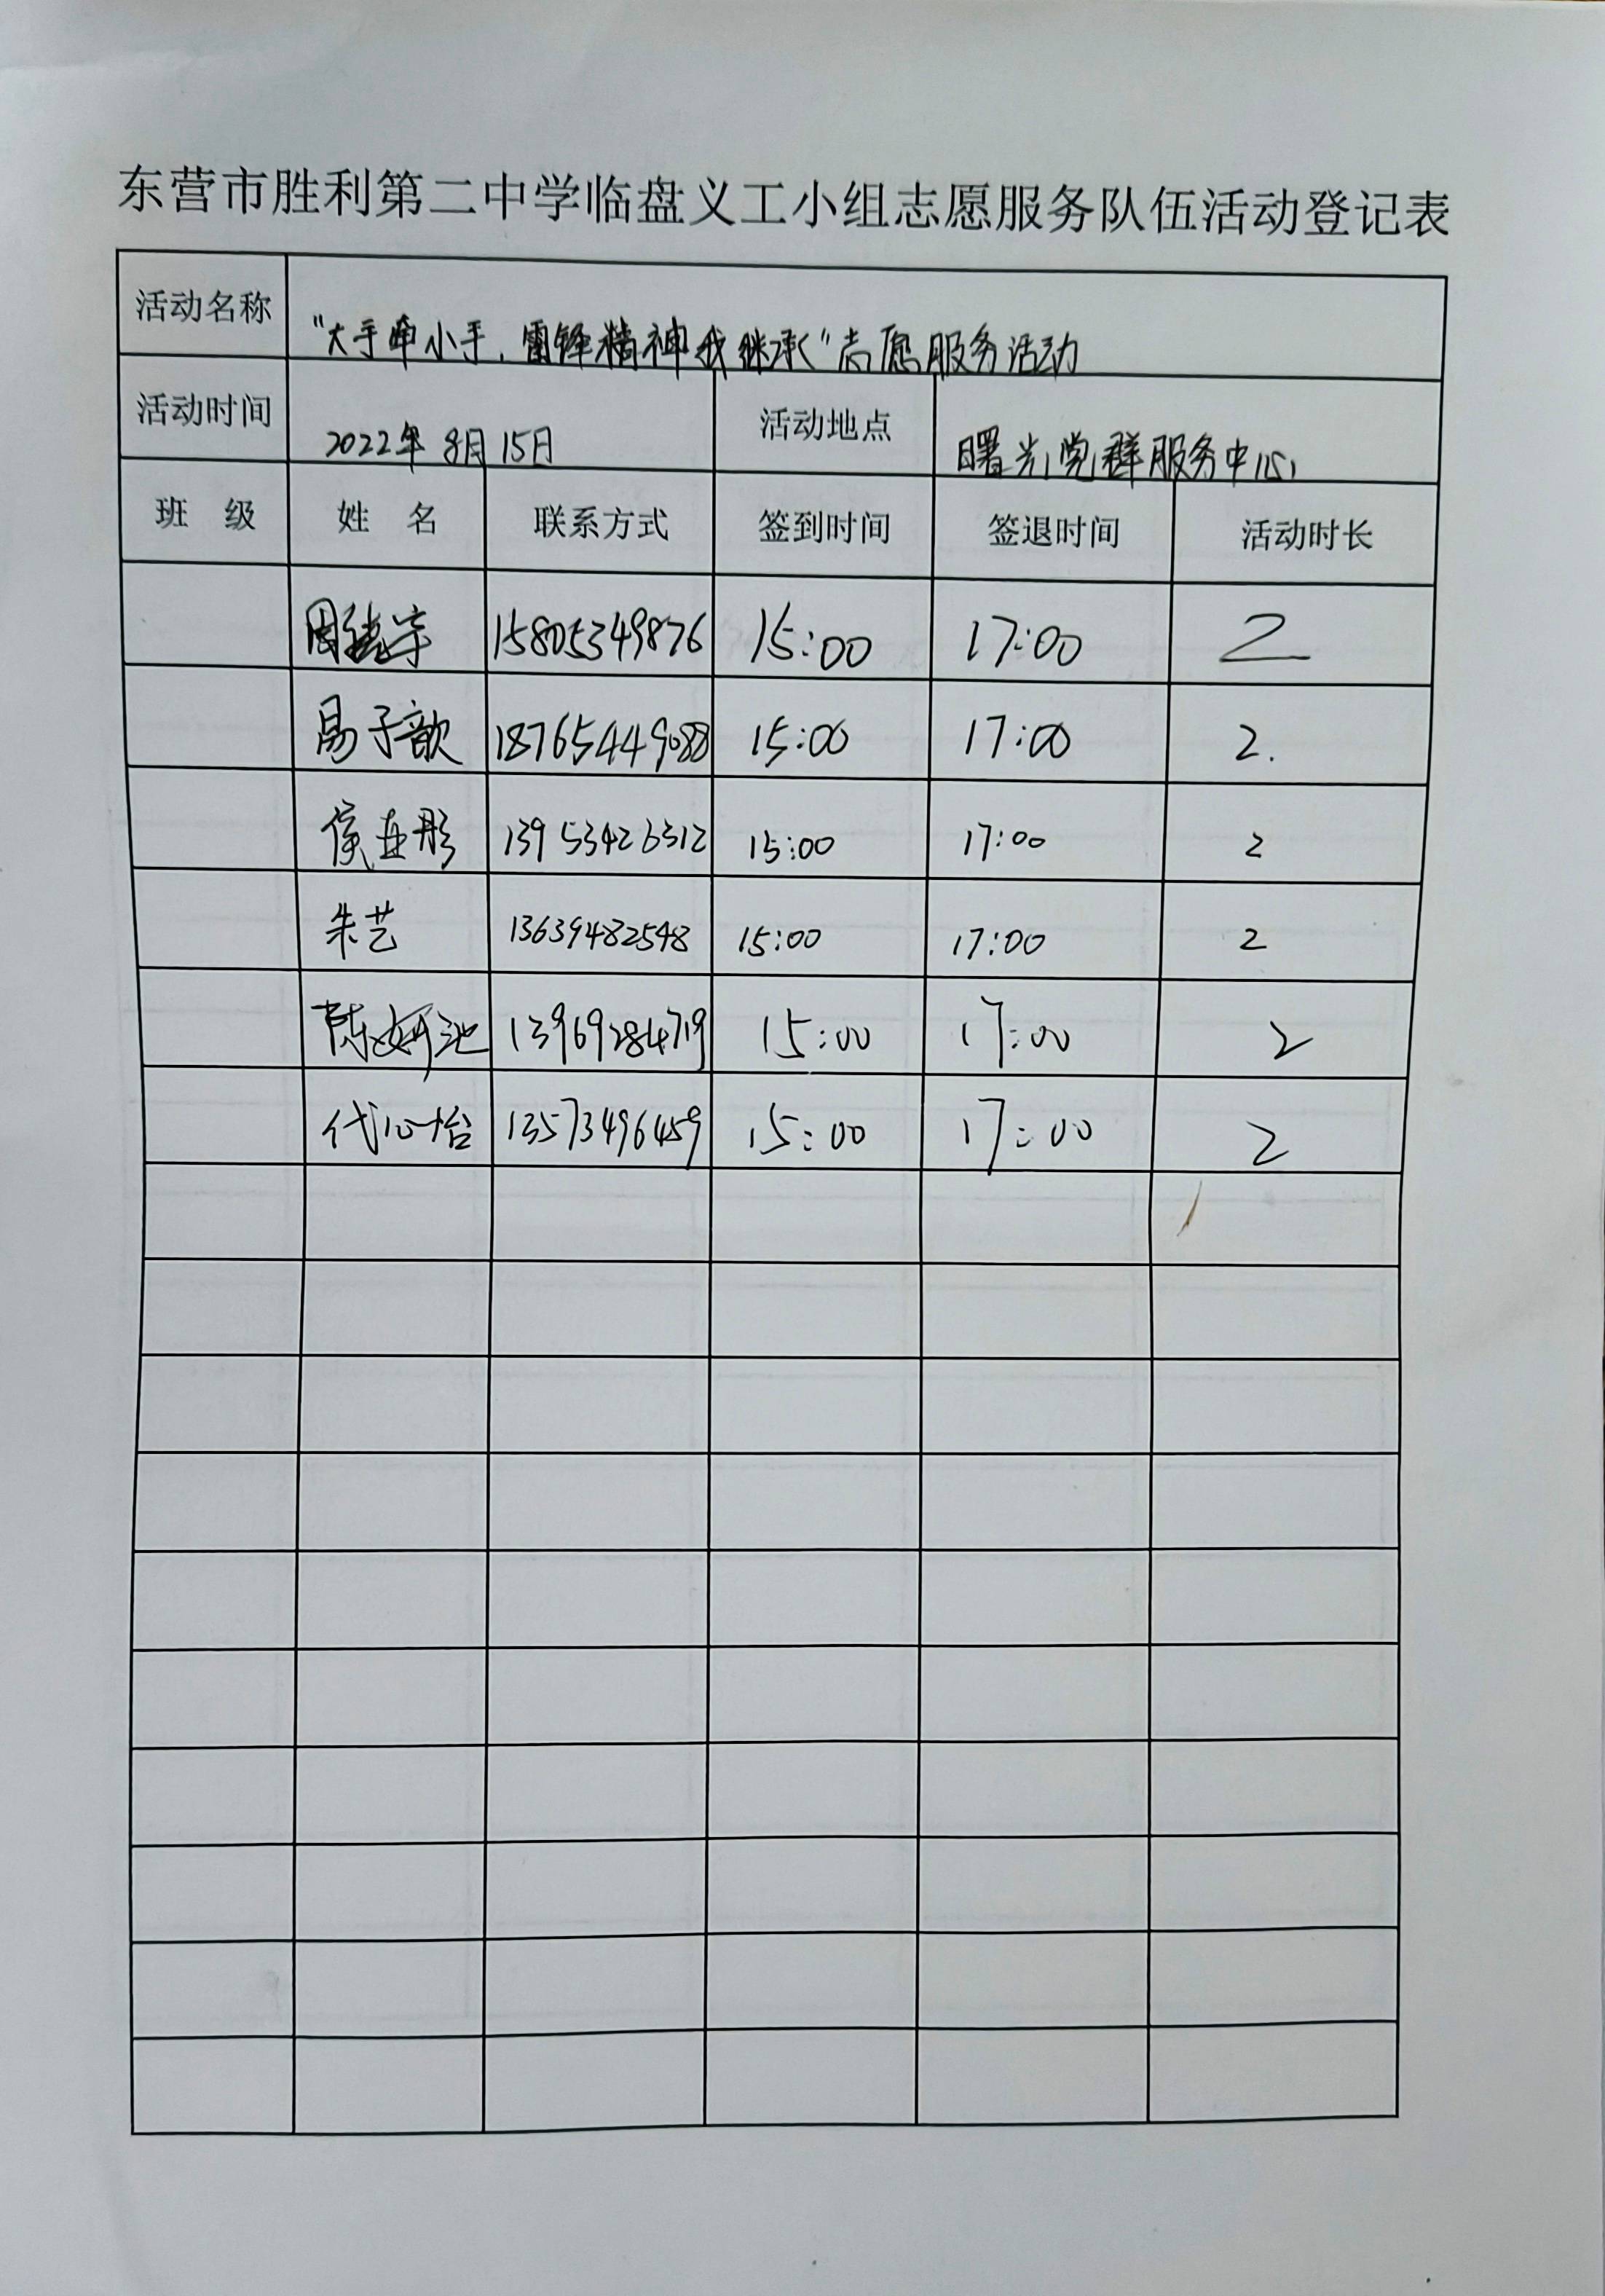 东营市胜利第二中学临盘义工小组志愿服务队伍活动登记表
活动名称 "大手牵小手,雷锋精神我继承"志愿服务活动
活动时间 2022年8月15日 活动地点 曙光党群服务中心
班 级 姓 名 联系方式 签到时间 签退时间 活动时长
15805349876 15:00 17:00 2
易子歆 18765449088 15:00 17:00 2.
侯亚彤 13953426312 15:00 17:00 2
朱艺 13639482548 15:00 17:00 2
陈妍池 13969284719 15:00 17:00 2
代心怡 13573496459 15:00 17:00 2